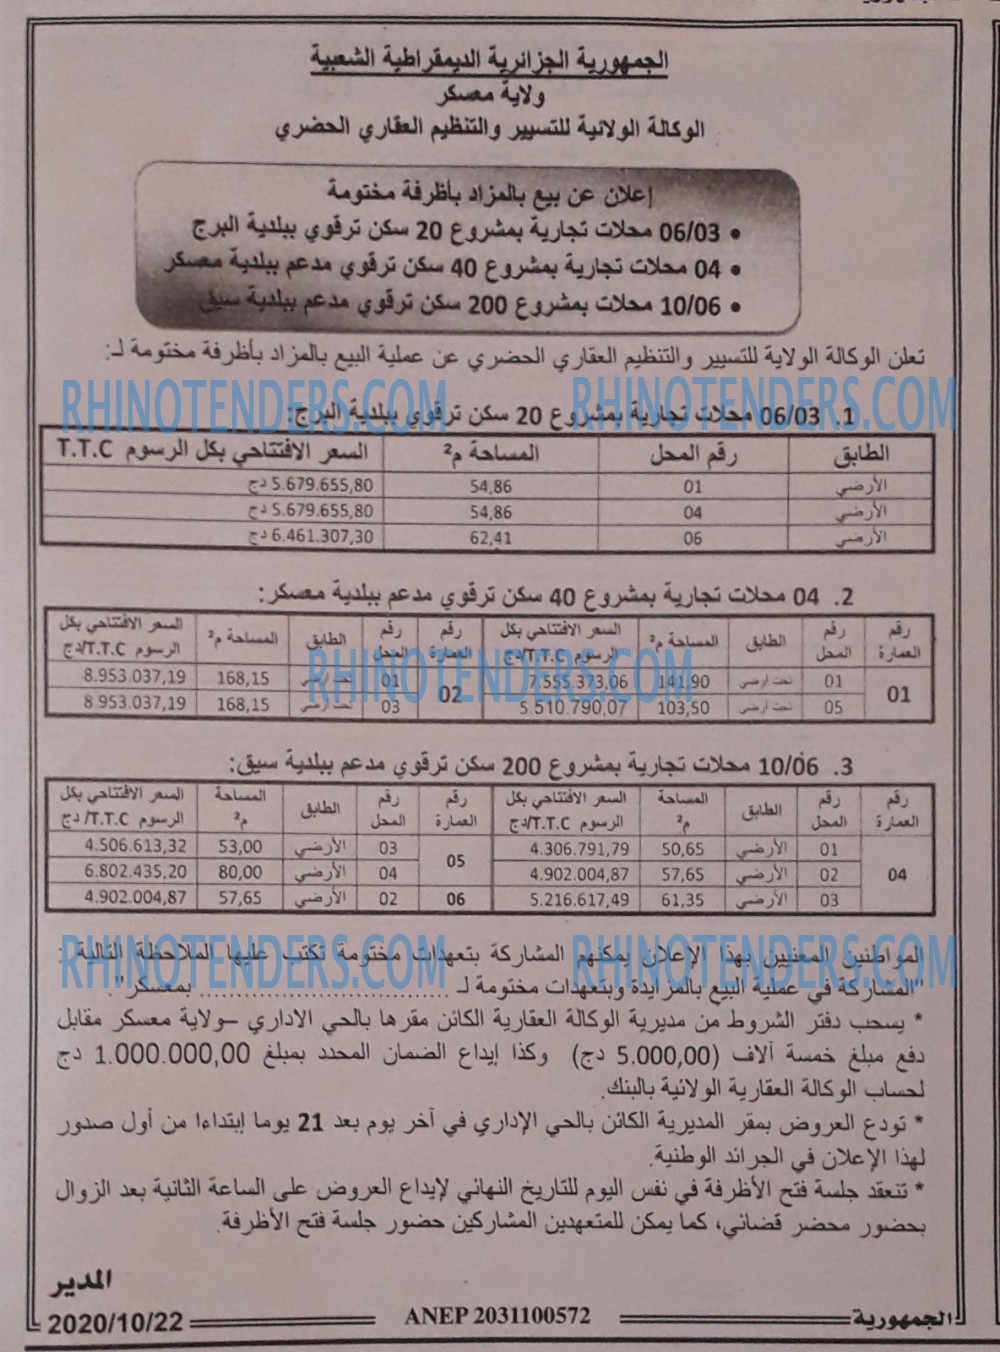 الجمهورية الجزائرية الديمقراطية الشعبية
ولاية معسكر
الوكالة الولائية للتسيير والتنظيم العقاري الحضري
إعلان عن بيع بالمزاد بأظرفة مختومة
• 06/03 محلات تجارية بمشروع 20 سكن ترقوي ببلدية البرج
• 04 محلات تجارية بمشروع 40 سكن ترقوي مدعم ببلدية معسكر
• 10/06 محلات بمشروع 200 سكن ترقوي مدعم ببلدية سيق
تعلن الوكالة الولاية للتسيير والتنظيم العقاري الحضري عن عملية البيع بالمزاد بأظرفة مختومة لـ:
RHINOTENDERS.COM RHINOTENDERS.COM
1. 06/03 محلات تجارية بمشروع 20 سكن ترقوي ببلدية البرج:
الطابق رقم المحل المساحة م² السعر الافتتاحي بكل الرسوم T.T.C
الأرضي 01 54,86 5.679.655,80 دج
الأرضي 04 54,86 5.679.655,80 دج
الأرضي 06 62,41 6.461.307,30 دج
2. 04 محلات تجارية بمشروع 40 سكن ترقوي مدعم ببلدية معسكر:
رقم العمارة رقم المحل الطابق المساحة م² السعر الافتتاحي بكل الرسوم T.T.C/دج رقم العمارة رقم المحل الطابق المساحة م² السعر الافتتاحي بكل الرسوم T.T.C/دج
RHINOTENDERS.COM
01 01 تحت أرضي 141,90 7.555.373,06 02 01 تحت أرضي 168,15 8.953.037,19
05 تحت أرضي 103,50 5.510.790,07 03 تحت أرضي 168,15 8.953.037,19
3. 10/06 محلات تجارية بمشروع 200 سكن ترقوي مدعم ببلدية سيق:
رقم العمارة رقم المحل الطابق المساحة م² السعر الافتتاحي بكل الرسوم T.T.C/دج رقم العمارة رقم المحل الطابق المساحة م² السعر الافتتاحي بكل الرسوم T.T.C/ دج
04 01 الأرضي 50,65 4.306.791,79 05 03 الأرضي 53,00 4.506.613,32
02 الأرضي 57,65 4.902.004,87 04 الأرضي 80,00 6.802.435,20
03 الأرضي 61,35 5.216.617,49 06 02 الأرضي 57,65 4.902.004,87
المواطنين المعنيين بهذا الإعلان يمكنهم المشاركة بتعهدات مختومة تكتب عليها الملاحظة التالية :
RHINOTENDERS.COM RHINOTENDERS.COM
"المشاركة في عملية البيع بالمزايدة وبتعهدات مختومة لـ .................................. بمعسكر".
* يسحب دفتر الشروط من مديرية الوكالة العقارية الكائن مقرها بالحي الاداري –ولاية معسكر مقابل
دفع مبلغ خمسة آلاف (5.000,00 دج) وكذا إيداع الضمان المحدد بمبلغ 1.000.000,00 دج
لحساب الوكالة العقارية الولائية بالبنك.
* تودع العروض بمقر المديرية الكائن بالحي الإداري في آخر يوم بعد 21 يوما إبتداءا من أول صدور
لهذا الإعلان في الجرائد الوطنية.
* تنعقد جلسة فتح الأظرفة في نفس اليوم للتاريخ النهائي لإيداع العروض على الساعة الثانية بعد الزوال
بحضور محضر قضائي، كما يمكن للمتعهدين المشاركين حضور جلسة فتح الأظرفة.
المدير
الجمهورية ANEP 2031100572 2020/10/22